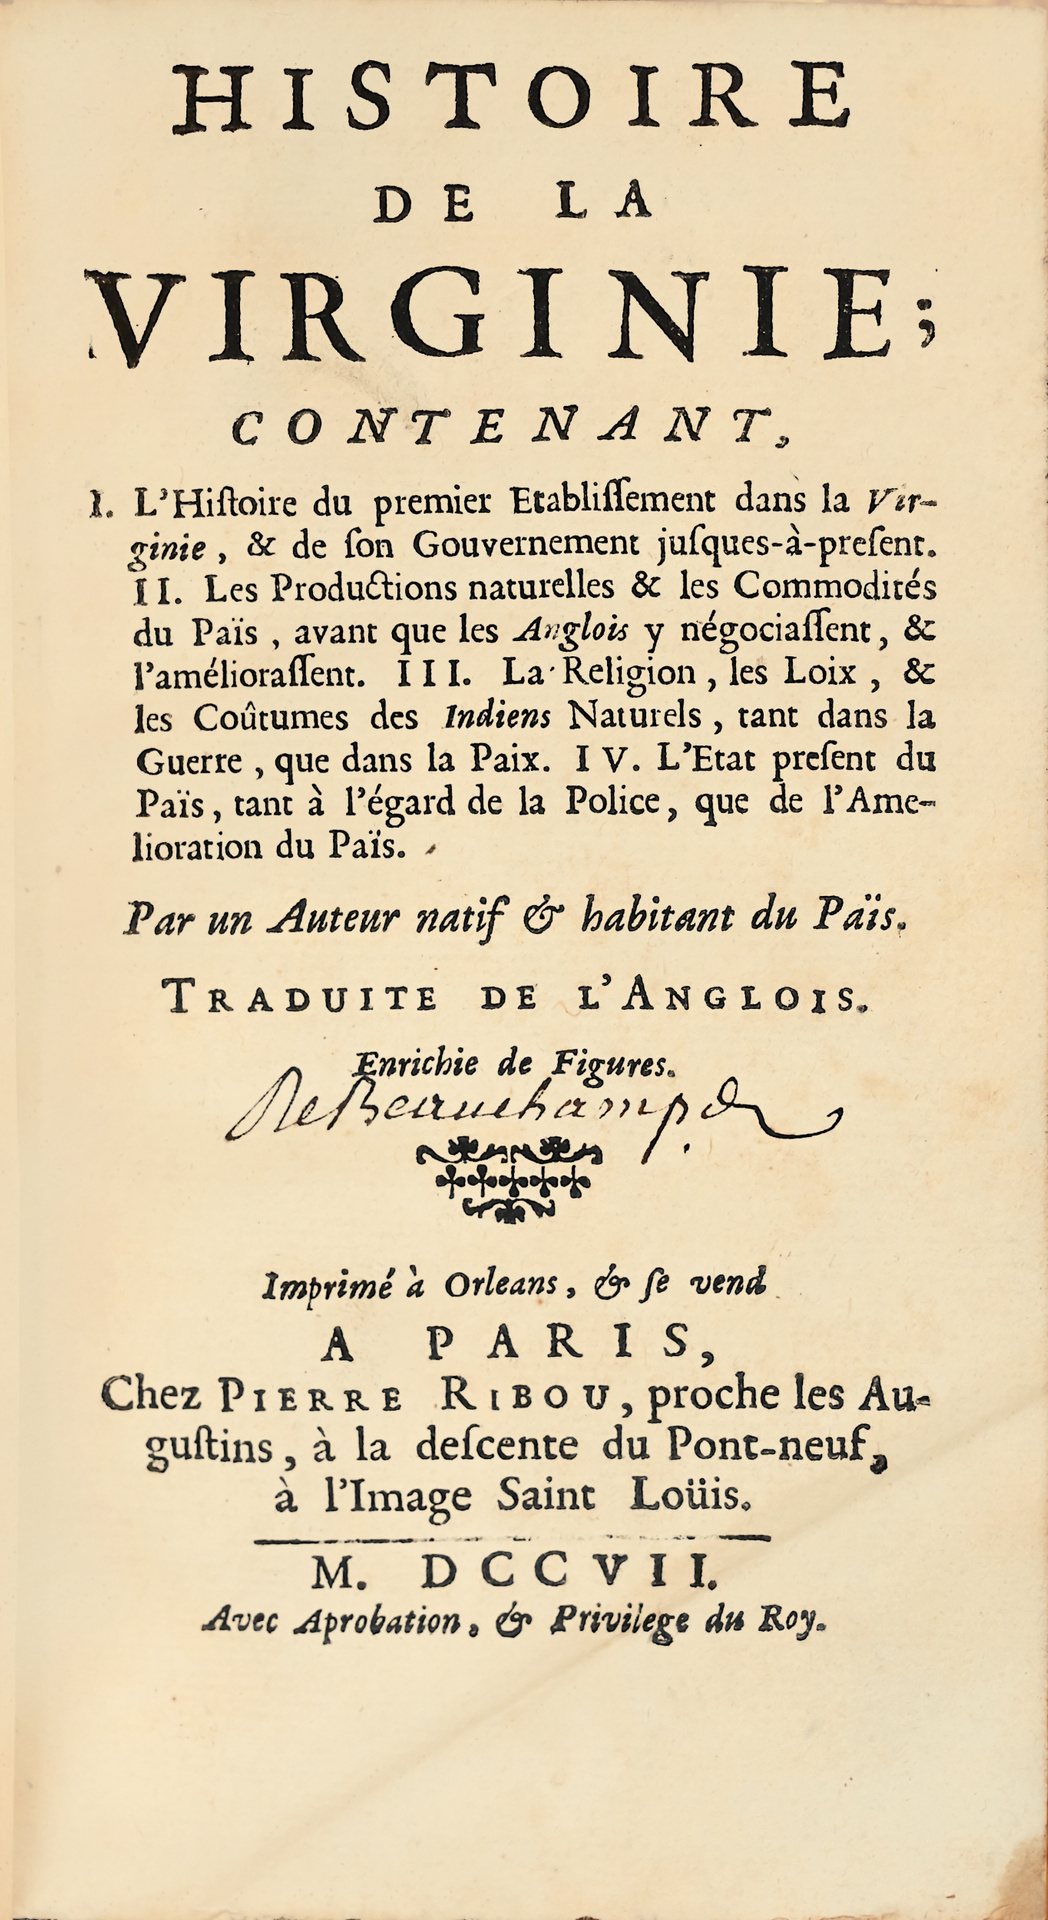 HISTOIRE
DE LA
VIRGINIE;
CONTENANT,
I. L'Hiſtoire du premier Etabliſſement dans la Vir-
ginie, & de ſon Gouvernement juſques-à-preſent.
II. Les Productions naturelles & les Commodités
du Païs, avant que les Anglois y négociaſſent, &
l'amélioraſſent. III. La Religion, les Loix, &
les Coûtumes des Indiens Naturels, tant dans la
Guerre, que dans la Paix. IV. L'Etat preſent du
Païs, tant à l'égard de la Police, que de l'Ame-
lioration du Païs.
Par un Auteur natif & habitant du Païs.
TRADUITE DE L'ANGLOIS.
Enrichie de Figures.
DeBeauchamp
Imprimé à Orleans, & ſe vend
A PARIS,
Chez PIERRE RIBOU, proche les Au-
guſtins, à la deſcente du Pont-neuf,
à l'Image Saint Loüis.
M. DCCVII.
Avec Aprobation, & Privilege du Roy.